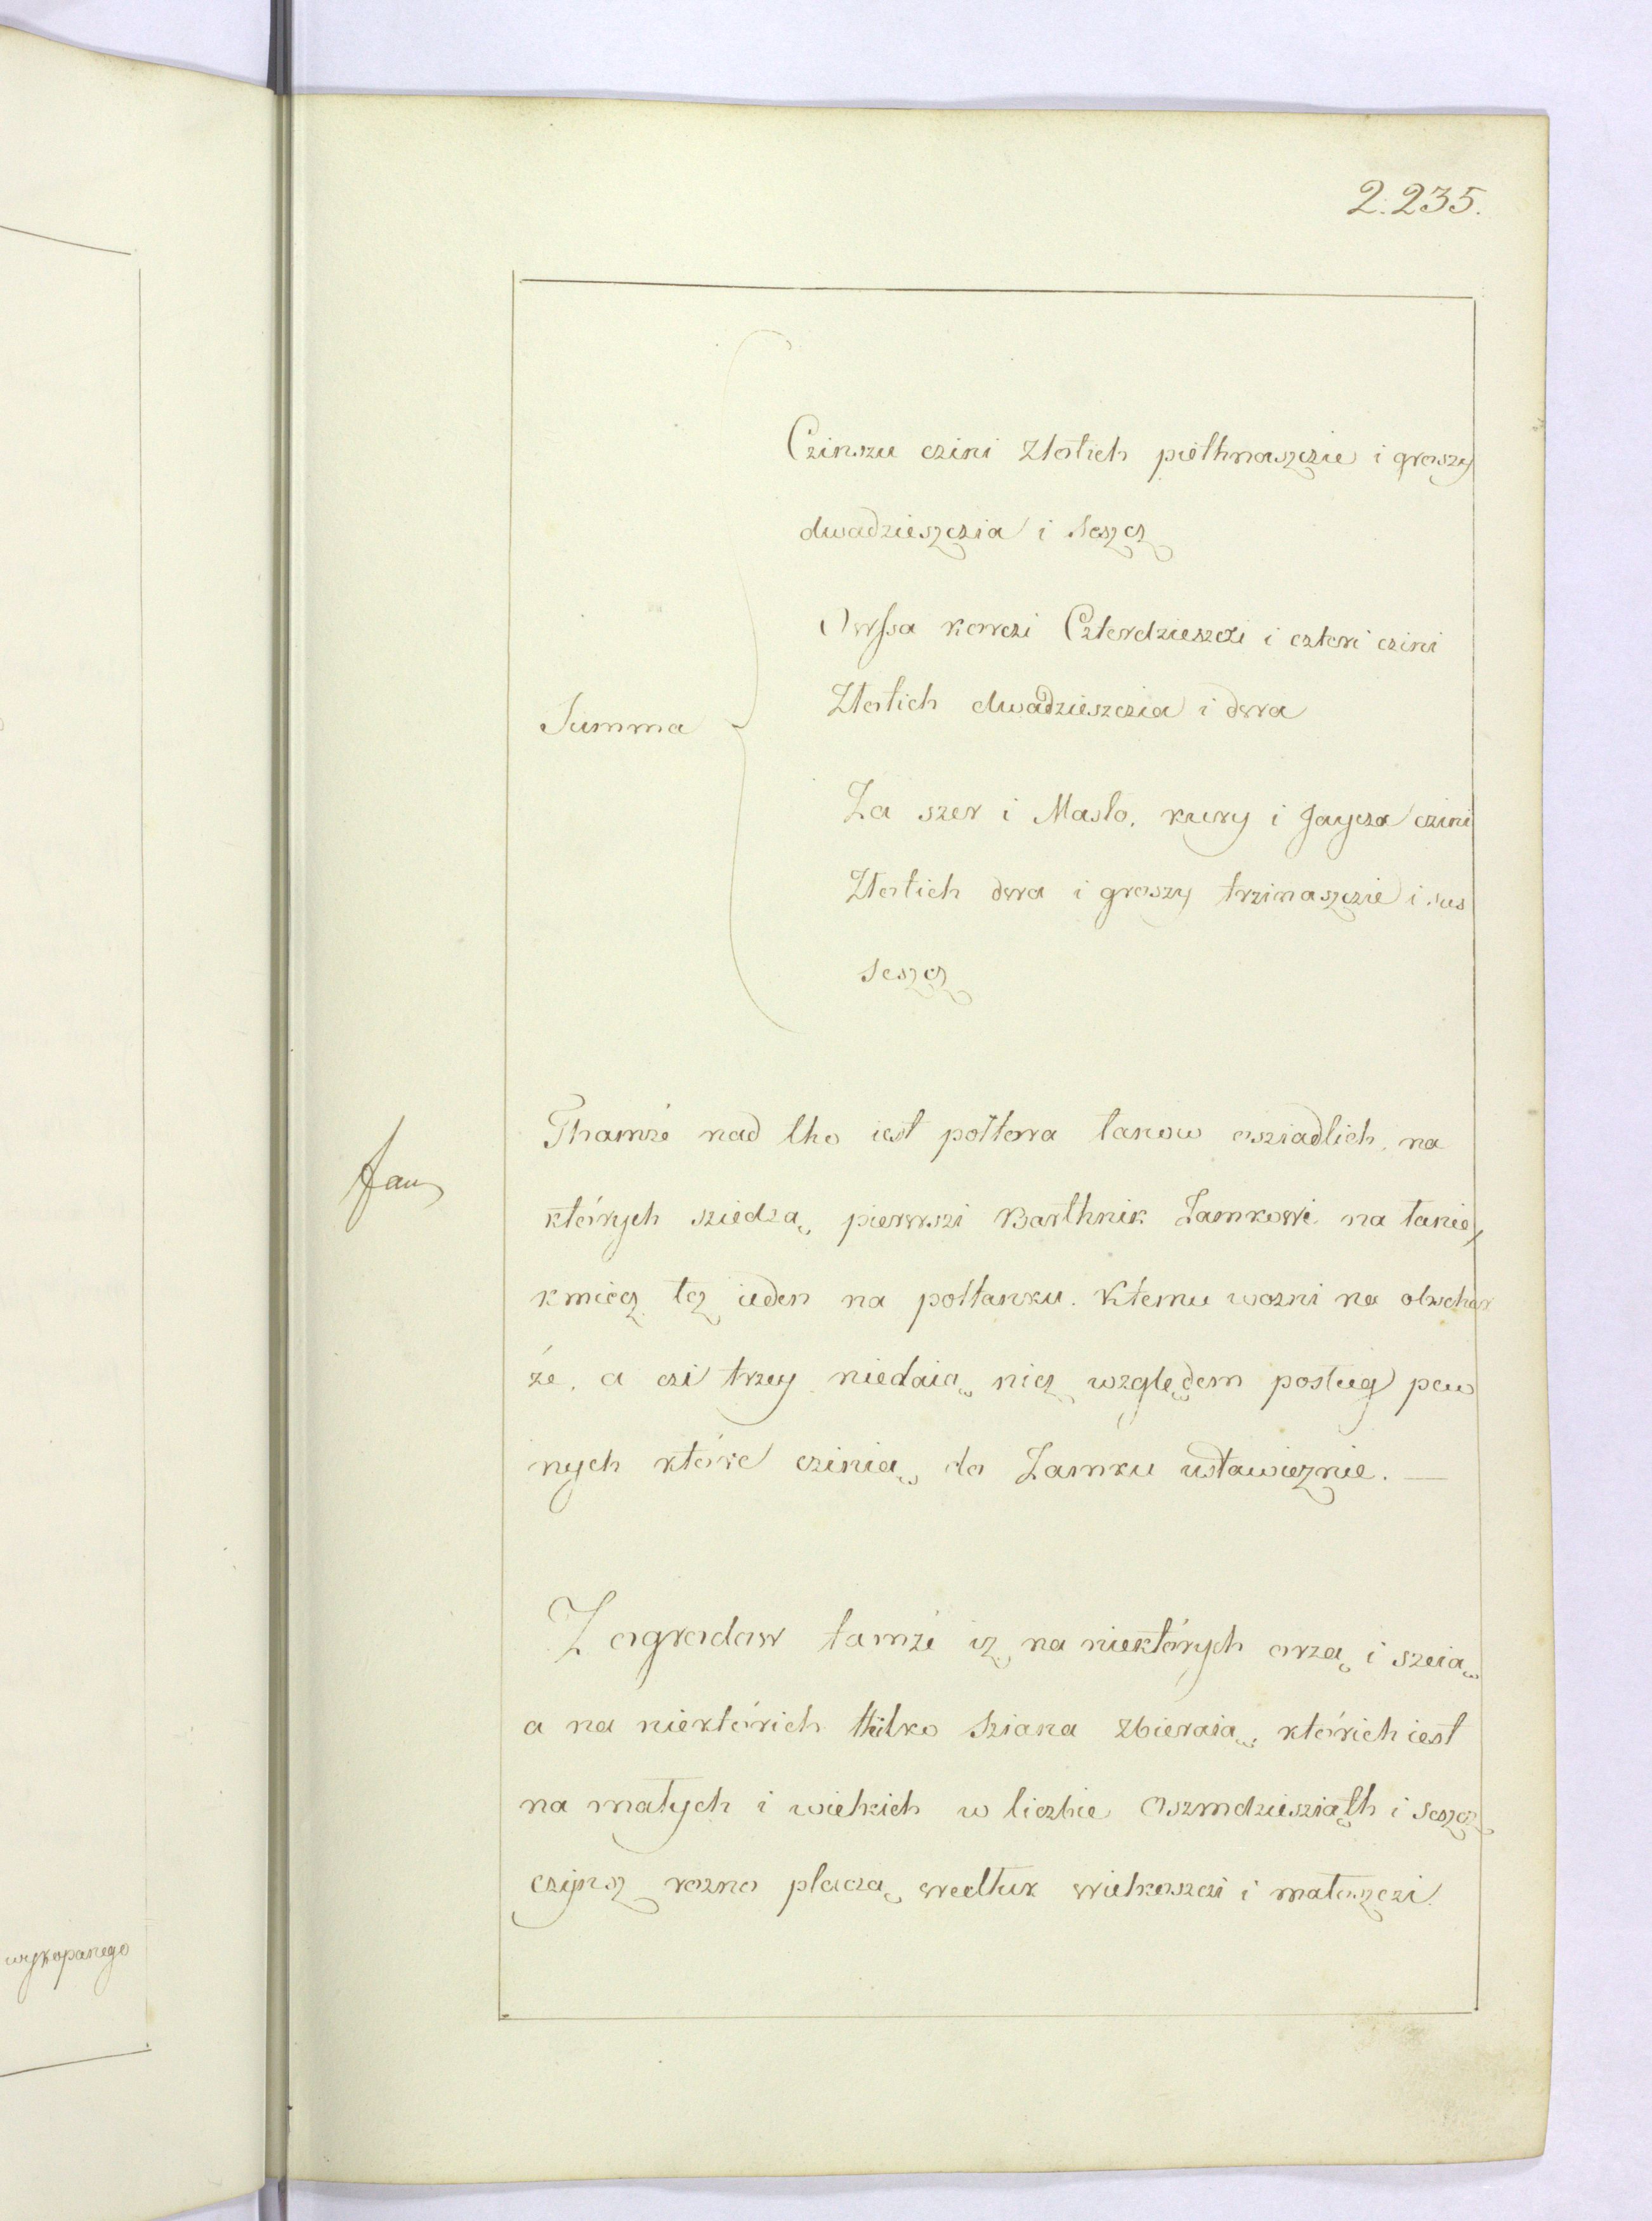 2.235.
Czinszu czini Złotich piethnaszczie i groszy
dwadzieszczia i szescz
Owssa korczi Czterdzieszczi i czteri czini
Złotich dwadzieszczia i dwa
Summa
Za szer i Masło, kury i Jaycza czini
Złotich dwa i groszy trzinaszczie i sus
seszcz
Thamże nad tho iest połtora łanow osziadlich, na
których sziedzą, pierwszi Barthnik Zamkowi na łanie,
kmiecz tez ieden na połłanku. Ktemu wozni na obwchar
że, a czi trzey niedaią nicz względem posług pew
nych które czinią do Zamku ustawicznie. —
Zagrodow tamże isz na niektórych orzą i szeią
a na niektórich thilko sziana zbieraią, których iest
na małych i wielkich w liczbie Oszmdziesziąth i seszcz
czijnsz rozno placzą wedłuk wielkoszczi i małoszczi.
wykopanego